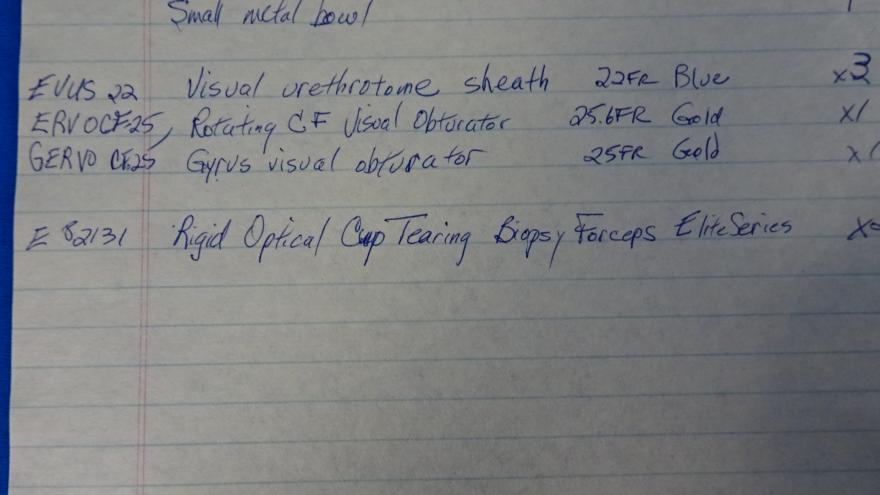 Small metal bowl
EVUS 22 Visual urethrotome sheath 22FR Blue x3
ERVOCF25, Rotating CF Visual Obturator 25.6FR Gold x1
GERVO CF25 Gyrus visual obturator 25FR Gold x1
E 82131 Rigid Optical Cup Tearing Biopsy Forceps EliteSeries